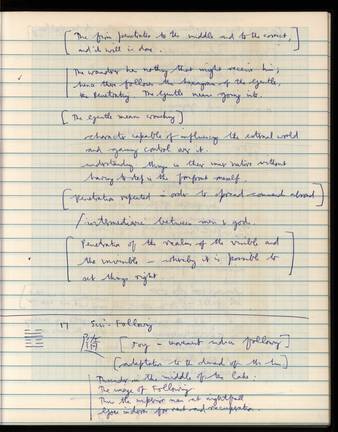 [The firm penetrates to the middle and to the correct,
and its will is done.
The wanderer has nothing that might receive him;
hence there follows the hexagram of the Gentle,
the Penetrating. The Gentle means going into.
[The Gentle means crouching]
character capable of influencing the external world
and gaining control over it.
understanding things in their inner nature without
having to step in the forefront oneself.
[Penetration repeated - order to spread commands abroad]
/intermediaries between men & gods.
[Penetration of the realms of the visible and
the invisible - whereby it is possible to
set things right]
17 Sui - Following
隨 [Joy - movement induces following]
[adaptation to the demand of the time]
Thunder in the middle of the lake.
The image of Following
Thus the superior man at nightfall
Goes indoors for rest and recuperation.